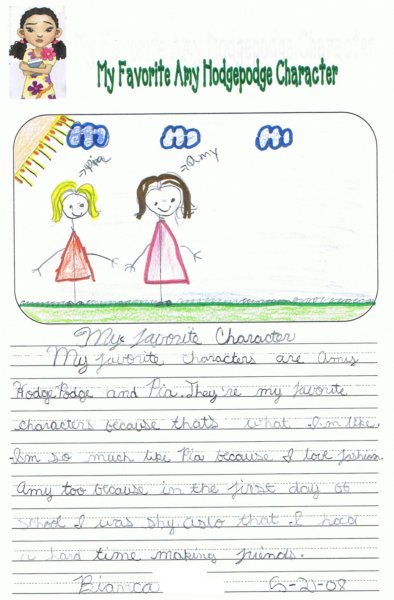 My Favorite Amy Hodgepodge Character
Pia
Amy
My favorite Character
My favorite characters are Amy
HodgePodge and Pia. They're my favorite
characters because that's what I'm like.
I'm so much like Pia because I love fashion.
Amy too because in the first day of
school I was shy also that I had
a hard time making friends.
Bianca 5-21-08